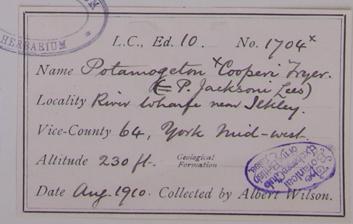 HERBARIUM
L.C., Ed. 10. No. 1704ˣ
Name Potamogeton ˣCooperi Fryer.
(= P. Jacksoni Lees)
Locality River Wharfe near Ilkley.
Vice-County 64, York Mid-west.
Altitude 230 ft. Geological Formation
Date Aug. 1910. Collected by Albert Wilson.